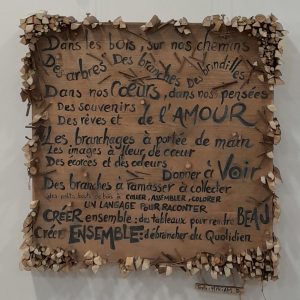 Dans les bois, sur nos chemins
Des arbres Des branches De brindilles
Dans nos CŒURS, dans nos pensées
Des souvenirs
Des rêves et de l'AMOUR
Les branchages à portée de main
Les images à fleur de cœur
Des écorces et des odeurs
Donner à VOIR
Des branches à ramasser à collecter
des petits bouts de bois à COLLER, ASSEMBLER, COLORER
UN LANGAGE POUR RACONTER
CRÉER ensemble: des tableaux pour rendre BEAU
Créer ENSEMBLE: débrancher du Quotidien